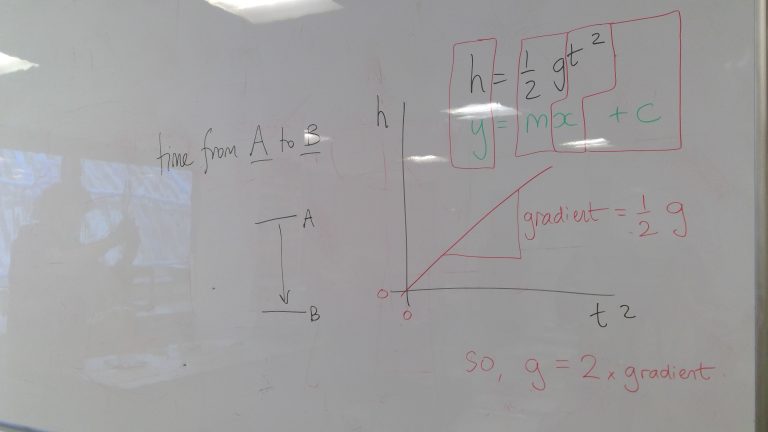 time from A to B
A
B
h = 1/2 gt²
y = mx + c
h
gradient = 1/2 g
0
0
t 2
so, g = 2 × gradient